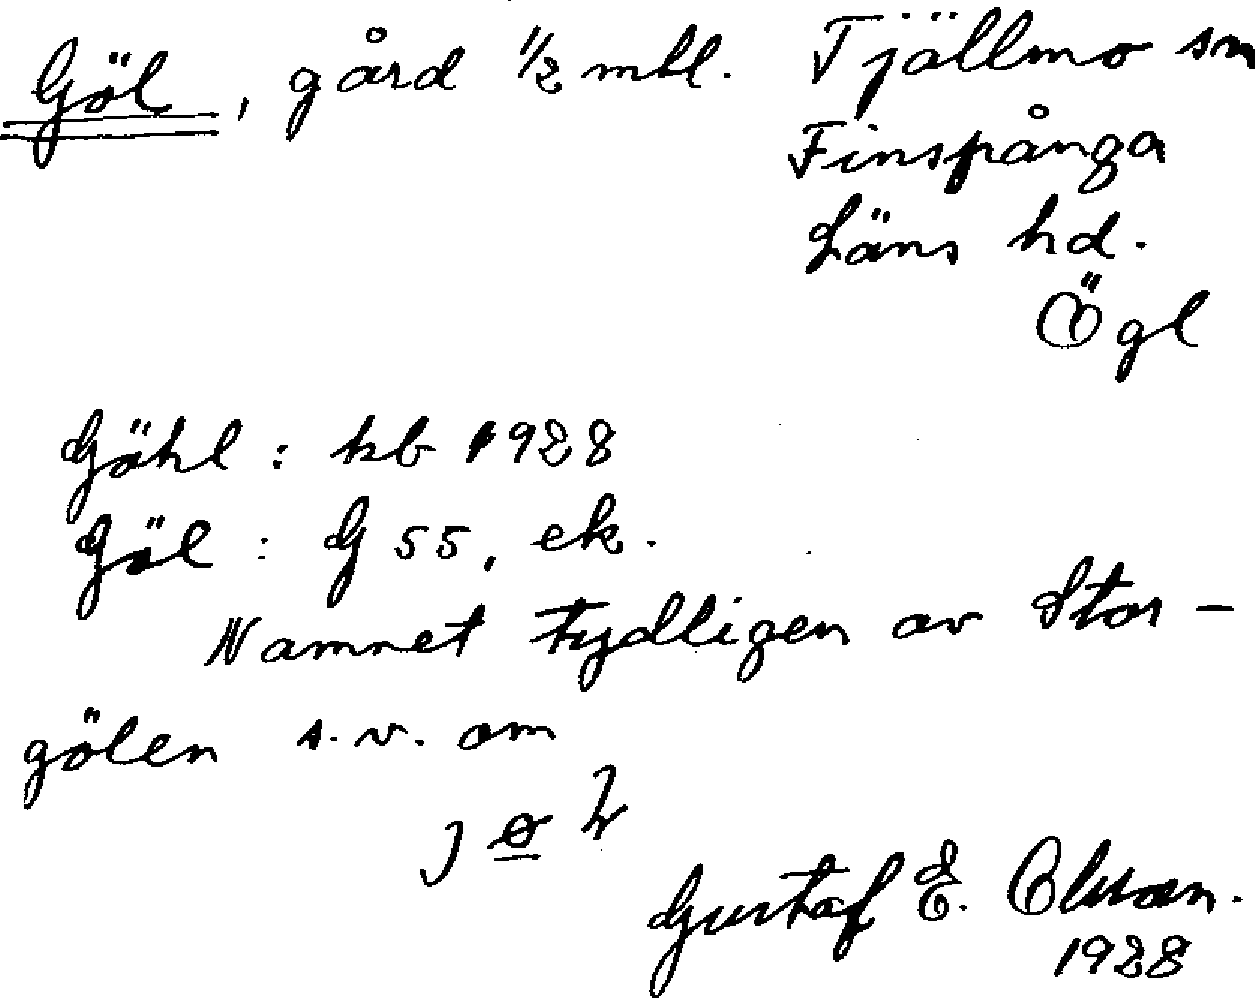 Göl, gård 1/2 mtl. Tjällmo sn
Finspånga
Läns hd.
Ögl
Göhl : kb 1928
Göl : G 55, ek.
Namnet tydligen av Stor-
gölen s.v. om
Gustaf E. Olsson.
1928